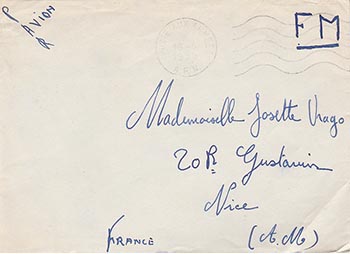 PAR AVION
FM
Mademoiselle Josette Vrago
20 R. Gustavin
Nice
FRANCE
(A.M)